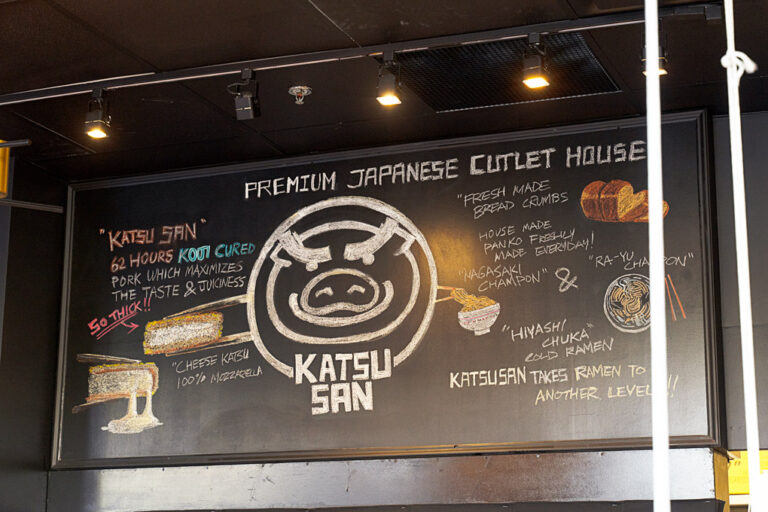 PREMIUM JAPANESE CUTLET HOUSE
"KATSU SAN"
62 HOURS KOJI CURED
PORK WHICH MAXIMIZES
THE TASTE & JUICINESS
SO THICK!!
"CHEESE KATSU
100% MOZZARELLA
KATSU
SAN
"FRESH MADE
BREAD CRUMBS
HOUSE MADE
PANKO FRESHLY
MADE EVERYDAY!
"NAGASAKI
CHAMPON"
&
"RA-YU
CHAMPON"
"HIYASHI
CHUKA"
COLD RAMEN
KATSUSAN TAKES RAMEN TO
ANOTHER LEVEL!!